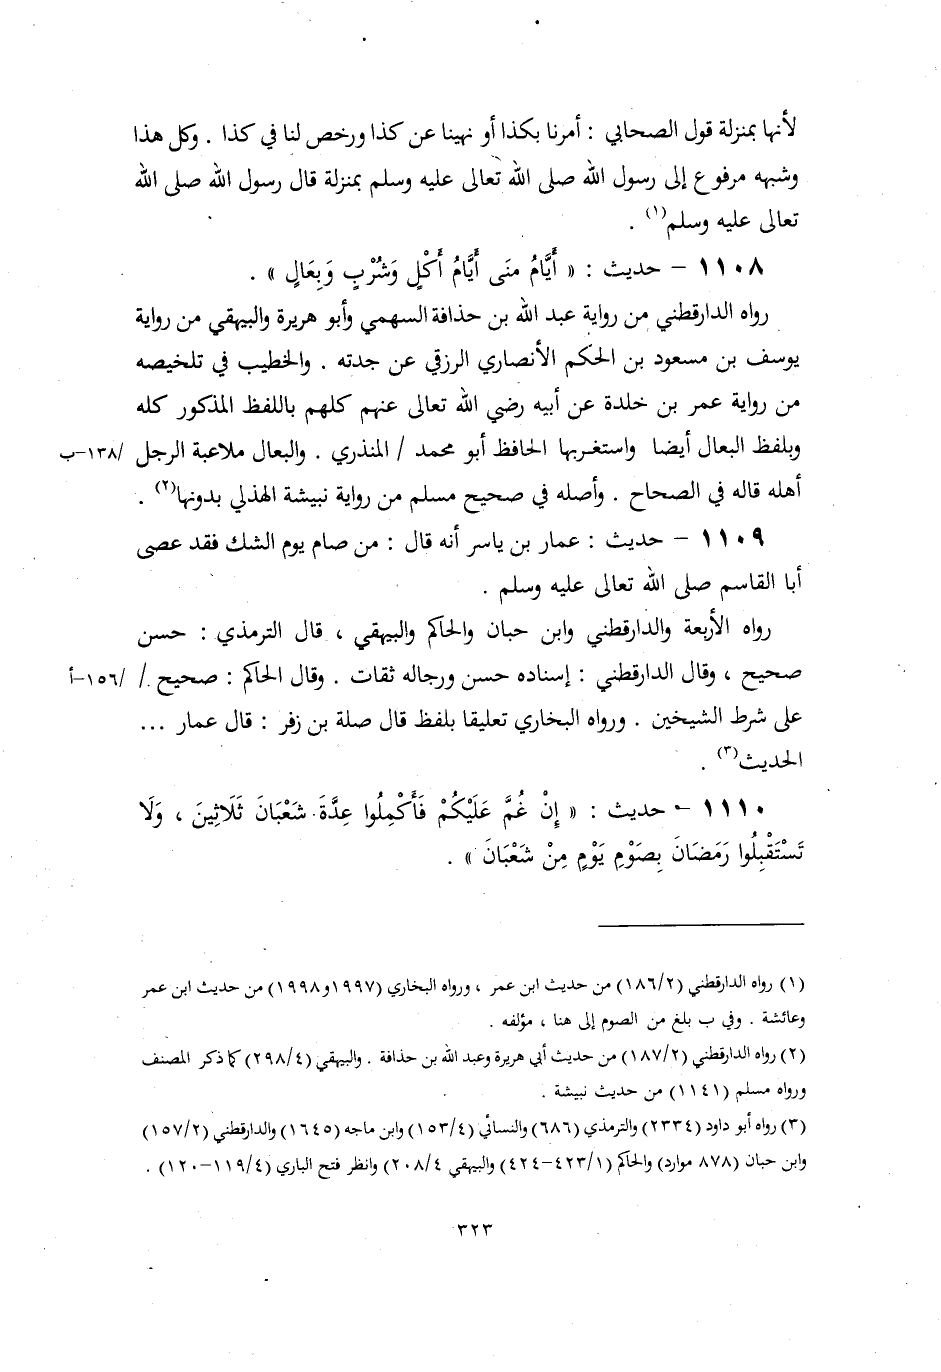 لأنها بمنزلة قول الصحابي : أمرنا بكذا أو نهينا عن كذا ورخص لنا في كذا . وكل هذا
وشبهه مرفوع إلى رسول الله صلى الله تعالى عليه وسلم بمنزلة قال رسول الله صلى الله
تعالى عليه وسلم(١) .
١١٠٨ – حديث : « أَيَّامُ مِنَى أَيَّامُ أَكْلٍ وَشُرْبٍ وَبِعَالٍ » .
رواه الدارقطني من رواية عبد الله بن حذافة السهمي وأبو هريرة والبيهقي من رواية
يوسف بن مسعود بن الحكم الأنصاري الرزقي عن جدته . والخطيب في تلخيصه
من رواية عمر بن خلدة عن أبيه رضي الله تعالى عنهم كلهم باللفظ المذكور كله
وبلفظ البعال أيضا واستغربها الحافظ أبو محمد / المنذري . والبعال ملاعبة الرجل /١٣٨–ب
أهله قاله في الصحاح . وأصله في صحيح مسلم من رواية نبيشة الهذلي بدونها(٢) .
١١٠٩ – حديث : عمار بن ياسر أنه قال : من صام يوم الشك فقد عصى
أبا القاسم صلى الله تعالى عليه وسلم .
رواه الأربعة والدارقطني وابن حبان والحاكم والبيهقي ، قال الترمذي : حسن
صحيح ، وقال الدارقطني : إسناده حسن ورجاله ثقات . وقال الحاكم : صحيح / /١٥٦–أ
على شرط الشيخين . ورواه البخاري تعليقا بلفظ قال صلة بن زفر : قال عمار ...
الحديث(٣) .
١١١٠ – حديث : « إِنْ غُمَّ عَلَيْكُمْ فَأَكْمِلُوا عِدَّةَ شَعْبَانَ ثَلَاثِينَ ، وَلَا
تَسْتَقْبِلُوا رَمَضَانَ بِصَوْمِ يَوْمٍ مِنْ شَعْبَانَ » .
(١) رواه الدارقطني (١٨٦/٢) من حديث ابن عمر ، ورواه البخاري (١٩٩٧و١٩٩٨) من حديث ابن عمر
وعائشة . وفي ب بلغ من الصوم إلى هنا ، مؤلفه .
(٢) رواه الدارقطني (١٨٧/٢) من حديث أبي هريرة وعبد الله بن حذافة . والبيهقي (٢٩٨/٤) كما ذكر المصنف
ورواه مسلم (١١٤١) من حديث نبيشة .
(٣) رواه أبو داود (٢٣٣٤) والترمذي (٦٨٦) والنسائي (١٥٣/٤) وابن ماجه (١٦٤٥) والدارقطني (١٥٧/٢)
وابن حبان (٨٧٨ موارد) والحاكم (٤٢٣/١–٤٢٤) والبيهقي ٢٠٨/٤) وانظر فتح الباري (١١٩/٤–١٢٠) .
٣٢٣